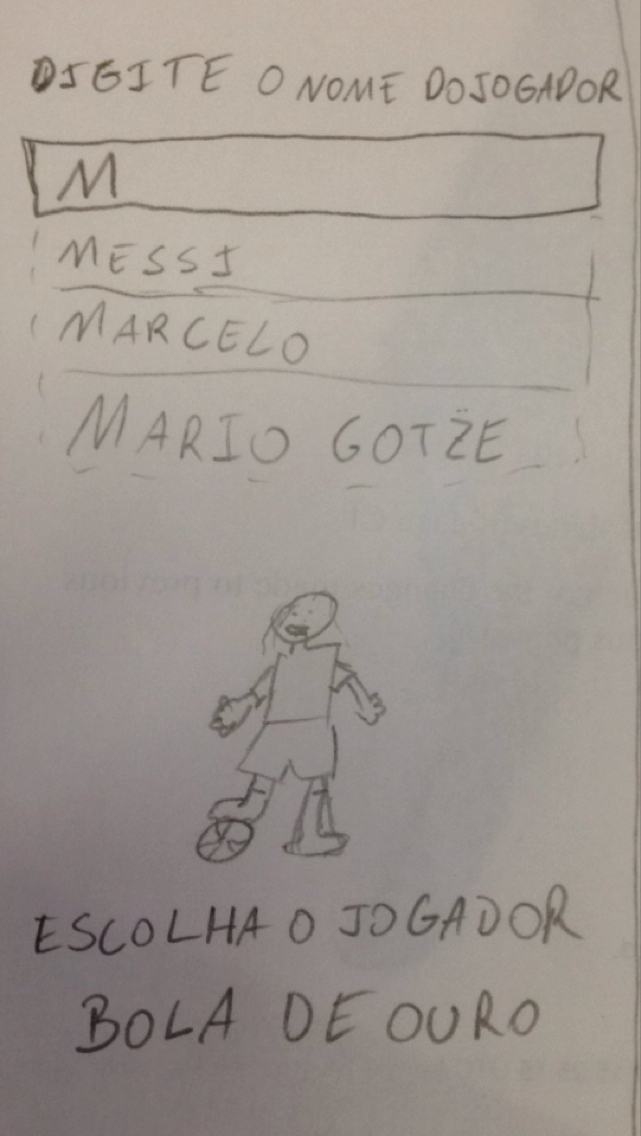 DIGITE O NOME DO JOGADOR
M
MESSI
MARCELO
MARIO GOTZE
ESCOLHA O JOGADOR
BOLA DE OURO